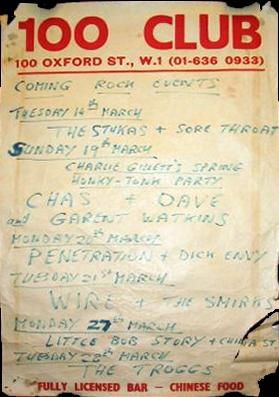 100 CLUB
100 OXFORD ST., W.1 (01-636 0933)
COMING ROCK EVENTS
TUESDAY 14th MARCH
THE STUKAS + SORE THROAT
SUNDAY 19th MARCH
CHARLIE GILLETT'S SPRING
HONKY-TONK PARTY
CHAS + DAVE
and GARENT WATKINS
MONDAY 20th MARCH
PENETRATION + DICK ENVY
TUESDAY 21st MARCH
WIRE + THE SMIRKS
MONDAY 27th MARCH
LITTLE BOB STORY + CHINA ST.
TUESDAY 28th MARCH
THE TROGGS
FULLY LICENSED BAR — CHINESE FOOD